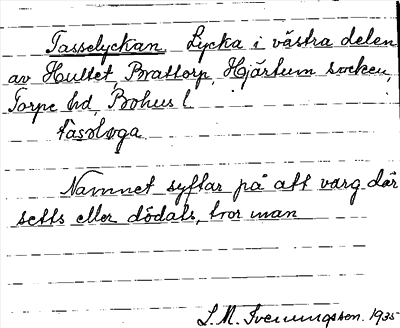 Tasselyckan. Lycka i västra delen
av Hultet, Brattorp, Hjärtum socken,
Torpe hd, Bohus l
Namnet syftar på att varg där
setts eller dödats, tror man
L. M. Svenungsson. 1935